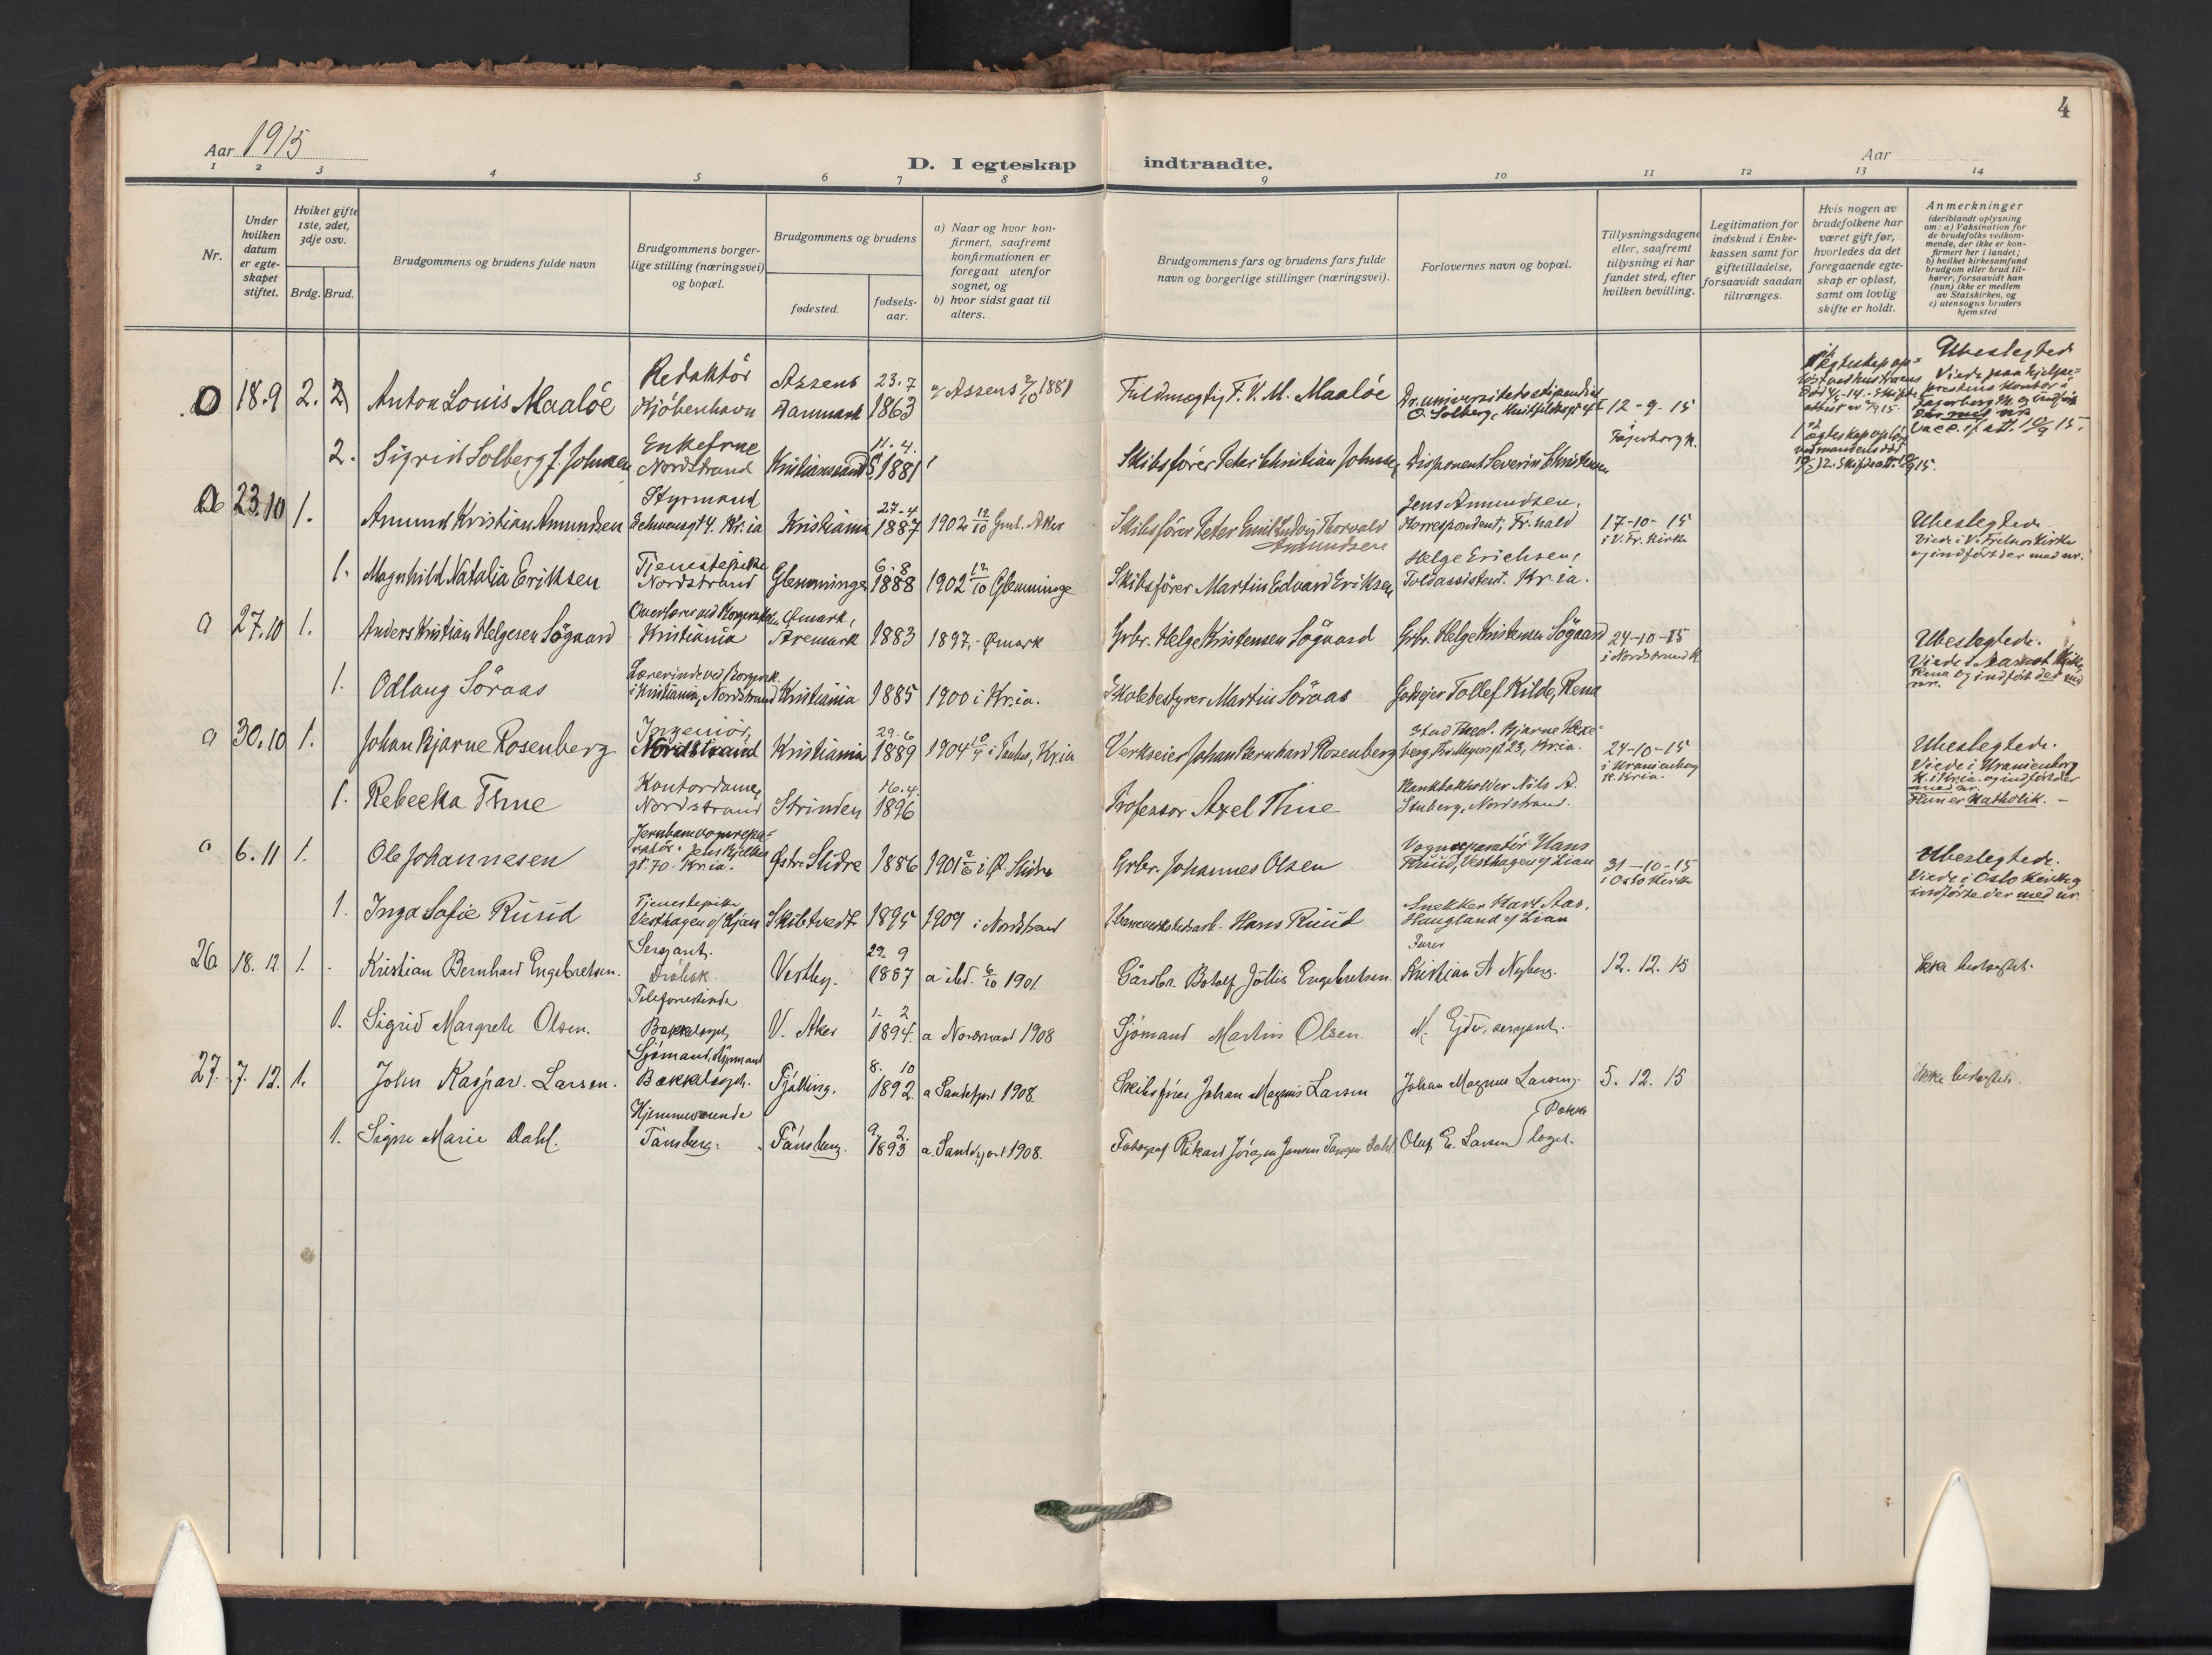 4
Aar 1915
D. I egteskap indtraadte.
Aar
1 2 3 4 5 6 7 8 9 10 11 12 13 14
Nr.
Under hvilken datum er egteskapet stiftet.
Hviket gifte 1ste, 2det, 3dje osv.
Brdg. Brud.
Brudgommens og brudens fulde navn
Brudgommens borgerlige stilling (næringsvei) og bopæl.
Brudgommens og brudens
fødested.
fødselsaar.
a) Naar og hvor konfirmert, saafremt konfirmationen er foregaat utenfor sognet, og
b) hvor sidst gaat til alters.
Brudgommens fars og brudens fars fulde navn og borgerlige stillinger (næringsvei).
Forlovernes navn og bopæl.
Tillysningsdagene eller, saafremt tillysning ei har fundet sted, efter hvilken bevilling.
Legitimation for indskud i Enkekassen samt for giftetilladelse, forsaavidt saadan tiltrænges.
Hvis nogen av brudefolkene har været gift før, hvorledes da det foregaaende egteskap er opløst, samt om lovlig skifte er holdt.
Anmerkninger
(deriblandt oplysning om: a) Vaksination for de brudefolks vedkommende, der ikke er konfirmert her i landet;
b) hvilket kirkesamfund brudgom eller brud tilhører, forsaavidt han (hun) ikke er medlem av Statskirken, og
c) utensogns bruders hjemsted
18.9 2. 2 Anton Louis Maalöe Redaktör Kjöbenhavn Assens Danmark 23.7 1863 Assens 2/10 1881 Fuldmægtig F. V. M. Maalöe Dr. universitetsstipendiat O. Solberg 12-9-15 i Fagerborg k. Ubeslegtede
2. Sigrid Solberg f. Johnsen Enkefrue Nordstrand Kristianssand S 11.4. 1881 Skibsfører Peter Christian Johnsen Disponent Severin Christensen
23.10 1. Amund Kristian Amundsen Styrmand Schwensgt 4. Kr.ia Kristiania 27-4 1887 1902 12/10 Gml. Aker Skibsfører Peter Emil Ludvig Thorvald Amundsen Jens Amundsen, Korrespondent, Fr.hald 17-10-15 i V. Fr. Kirke Ubeslegtede Viede i V. Frekers Kirke og indfört der med nr.
1. Magnhild Natalia Eriksen Tjenestepike Nordstrand Glemminge 6-8 1888 1902 12/10 Glemminge Skibsfører Martin Edvard Eriksen Helge Erichsen, Toldassistent. Kr.ia.
a 27.10 1. Anders Kristian Helgesen Sögaard Kristiania Ømark, Aremark 1883 1897, Ømark Grbr. Helge Kristensen Sögaard Grbr. Helge Kristensen Sögaard 24-10-15 i Nordstrand K. Ubeslegtede.
1. Odlaug Söraas Lærerinde ved Borgersk. i Kristiania, Nordstrand Kristiania 1885 1900 i Kr.ia. Skolebestyrer Martin Söraas Godseier Tollef Kilde, Rena
a 30.10 1. Johan Bjarne Rosenberg Ingeniör, Nordstrand Kristiania 29.6 1889 1904 10/4 i Paulus, Kr.ia Verkseier Johan Bernhard Rosenberg Stud Theol. Bjarne Hexeberg, Thv. Meyersgt. 23, Kr.ia. 24-10-15 i Uranienborg K. Kria. Ubeslegtede. Viede i Uranienborg K. i Kria. og indført der med nr. Hun er Katholik. –
1. Rebecka Thue Kontordame, Nordstrand Strinden 16.4. 1896 Professor Axel Thue Bankbokholder Nils A. Stuberg, Nordstrand.
a 6.11 1. Ole Johannesen Jernbanevognreparatör. Jens Bjelkes gt. 70. Kr.ia. Østre Slidre 1886 1901 i Ø. Slidre Grbr. Johannes Olsen Vognreparatör Hans Ruud, Vesthagen pr Lian 31-10-15 i Oslo Kirke Ubeslegtede. Viede i Oslo Kirke og indførte der med nr.
1. Inga Sofie Ruud Tjenestepike Vesthagen pr Ljan Skibtvedt 1895 1909 i Nordstrand Hans Ruud Snekker Karl Aas, Haugland pr Lian
26 18.12. 1. Kristian Bernhard Engebretsen. Sergant. Dröbak. Vestby. 29. 9 1887 a ibd. 6/10 1901. Gårdbr. Botolf Jöllis Engebretsen. Furer Kristian A Nyberg. 12.12.15 Ikke beslegtet.
1. Sigrid Margrete Olsen. Telefonistinde Bækkelaget V. Aker 1. 2 1894. a Nordstrand 1908 Sjömand Martin Olsen. N. Ejde, sergant.
27. 7. 12. 1. John Kaspar Larsen. Sjömand, styrmand Bækkelaget. Fjälling. 8. 10 1892. a Sandefjord 1908. Skibsfører Johan Magnus Larsen Johan Magnus Larsen. 5.12.15 Ikke beslegtet.
1. Signe Marie Dahl. Hjemmeværende Tönsberg. Tönsberg. 9. 2. 1893 a. Sandefjord 1908. Fotograf Rikard Jörgen Jensen Dahl Oluf E. Larsen Bækkelaget.